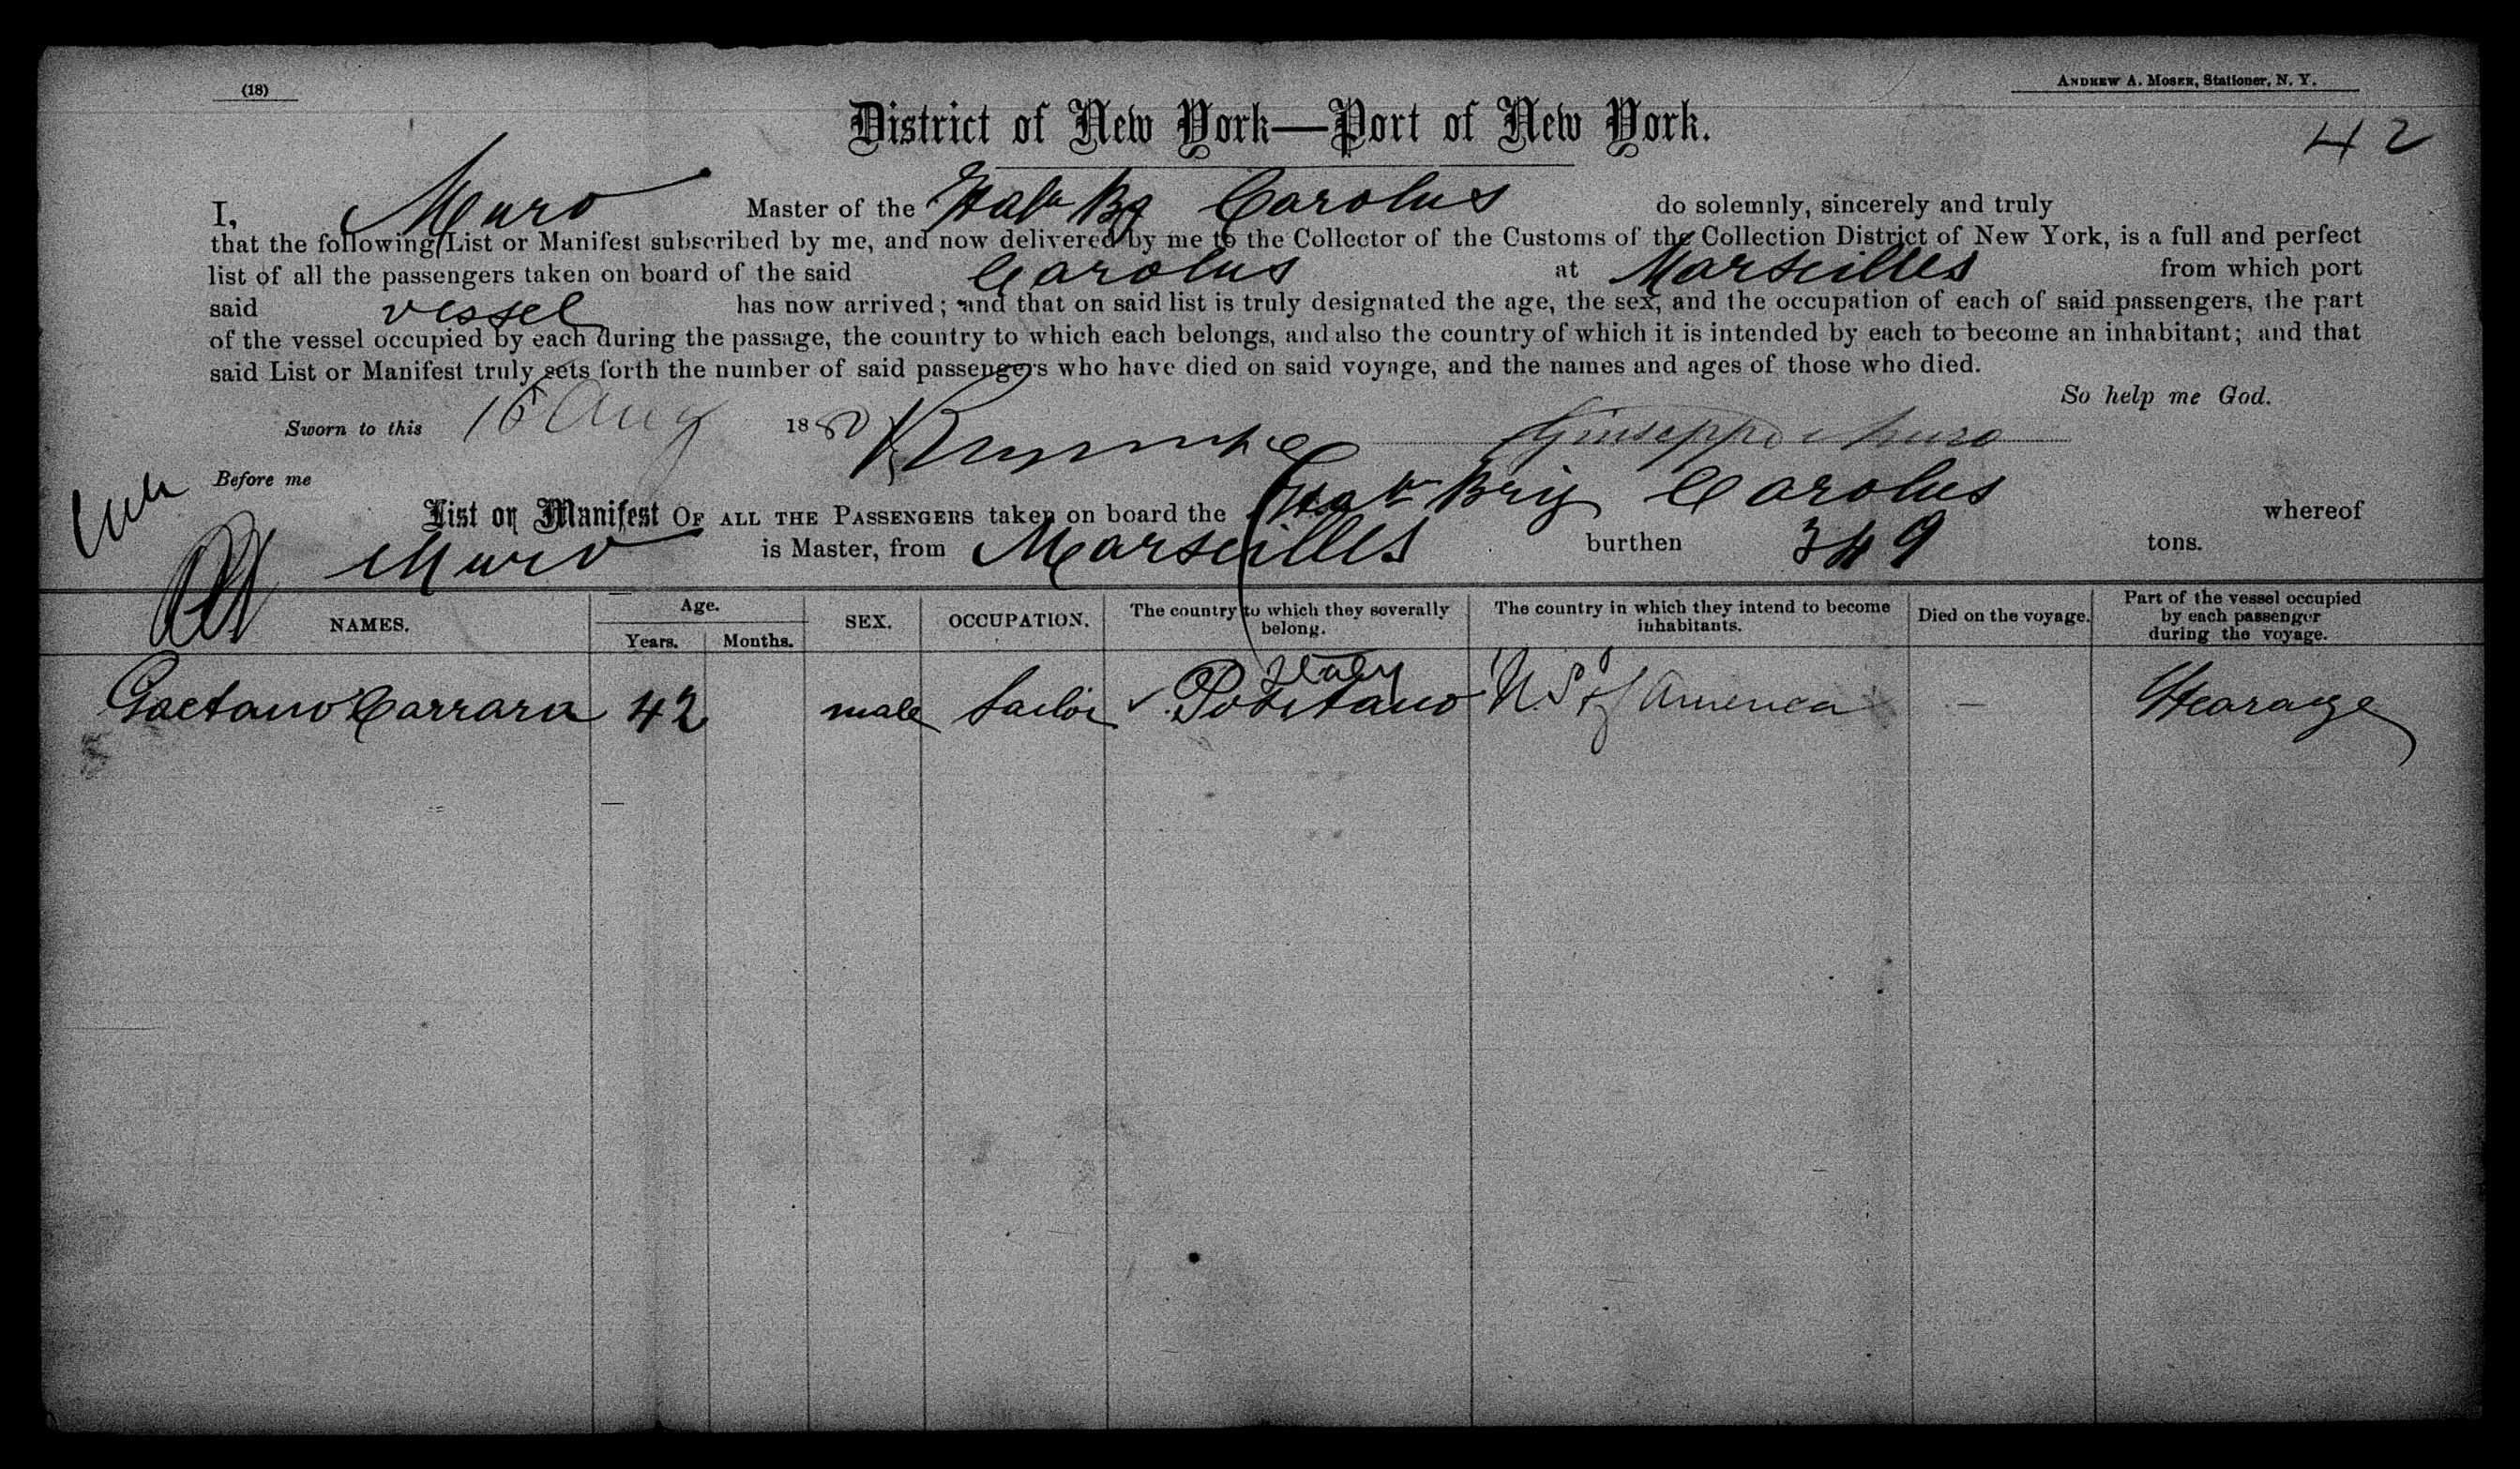 (18)
ANDREW A. MOSER, Stationer, N. Y.
District of New York—Port of New York.
42
I, Muro Master of the Italn Bg Carolus do solemnly, sincerely and truly
that the following List or Manifest subscribed by me, and now delivered by me to the Collector of the Customs of the Collection District of New York, is a full and perfect
list of all the passengers taken on board of the said Carolus at Marseilles from which port
said vessel has now arrived; and that on said list is truly designated the age, the sex, and the occupation of each of said passengers, the part
of the vessel occupied by each during the passage, the country to which each belongs, and also the country of which it is intended by each to become an inhabitant; and that
said List or Manifest truly sets forth the number of said passengers who have died on said voyage, and the names and ages of those who died.
So help me God.
Sworn to this 16 Aug 1880 Giuseppe Muro
Before me
List or Manifest OF ALL THE PASSENGERS taken on board the Italn Brig Carolus whereof
Muro is Master, from Marseilles burthen 349 tons.
NAMES. Age. Years. Months. SEX. OCCUPATION. The country to which they severally belong. The country in which they intend to become inhabitants. Died on the voyage. Part of the vessel occupied by each passenger during the voyage.
Italy
Gaetano Carrara 42 male Sailor Positano U.S. of America — Stearage